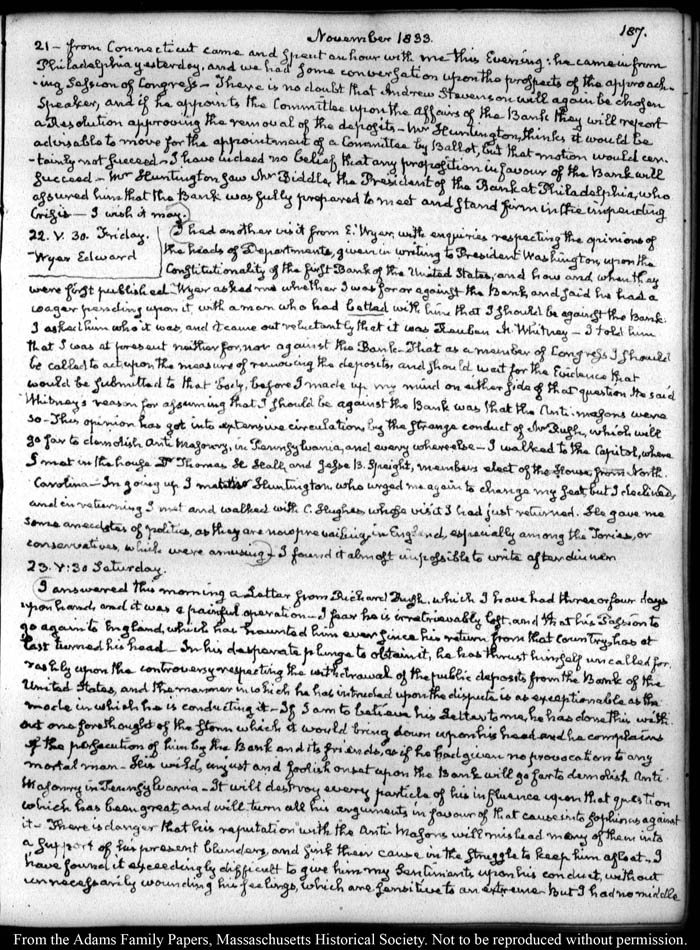 November 1833.
187.
21 - from Connecticut came and spent an hour with me this Evening: he came in from
Philadelphia yesterday, and we had some conversation upon the prospects of the approach-
-ing Session of Congress - There is no doubt that Andrew Stevenson will again be chosen
Speaker, and if he appoints the Committee upon the affairs of the Bank they will report
a Resolution approving the removal of the deposits - Mr Huntington, thinks it would be
advisable to move for the appointment of a Committee by Ballot, but that motion would cer-
-tainly not succeed - I have indeed no belief that any proposition in favour of the Bank will
succeed - Mr Huntington saw Mr Biddle, the President of the Bank at Philadelphia, who
assured him that the Bank was fully prepared to meet and stand firm in the impending
Crisis - I wish it may.
22. V. 30. Friday.
Wyer Edward
I had another visit from E. Wyer, with enquiries respecting the opinions of
the heads of Departments, given in writing to President Washington, upon the
Constitutionality of the first Bank of the United States, and how and when they
were first published. Wyer asked me whether I was for or against the Bank, and said he had a
wager pending upon it, with a man who had betted with him that I should be against the Bank.
I asked him who it was, and it came out reluctantly that it was Reuben M. Whitney - I told him
that I was at present neither for, nor against the Bank - That as a member of Congress I should
be called to act upon the measure of removing the deposits, and should wait for the Evidence that
would be submitted to that body, before I made up my mind on either side of that question. He said
Whitney's reason for assuming that I should be against the Bank was that the Anti-masons were
so - This opinion has got into extensive circulation by the strange conduct of Mr Rush, which will
go far to demolish Anti Masonry, in Pennsylvania, and every where else - I walked to the Capitol, where
I met in the house Dr Thomas H. Hall, and Jesse B. Speight, members elect of the House, from North
Carolina - In going up I met Mr Huntington, who urged me again to change my seat, but I declined,
and in returning I met and walked with C. Hughes, whose visit I had just returned. He gave me
some anecdotes of politics, as they are now prevailing in England, especially among the Tories, or
conservatives, which were amusing - I found it almost impossible to write after dinner
23. V: 30 Saturday.
I answered this morning a Letter from Richard Rush, which I have had three or four days
upon hand, and it was a painful operation - I fear he is irretrievably lost, and that his Passion to
go again to England, which has haunted him ever since his return from that Country, has at
last turned his head - In his desperate plunge to obtain it, he has thrust himself uncalled for,
rashly upon the controversy respecting the withdrawal of the public deposits from the Bank of the
United States, and the manner in which he has intruded upon the dispute is as exceptionable as the
mode in which he is conducting it - If I am to believe his Letter to me, he has done this with-
out one forethought of the storm which it would bring down upon his head and he complains
of the persecution of him by the Bank and its friends, as if he had given no provocation to any
mortal man - His wild, unjust and foolish onset upon the Bank will go far to demolish Anti-
Masonry in Pennsylvania - It will destroy every particle of his influence upon that question
which has been great, and will turn all his arguments in favour of that cause into sophisms against
it - There is danger that his reputation with the Anti Masons will mislead many of them into
a support of his present blunders, and sink their cause in the struggle to keep him afloat - I
have found it exceedingly difficult to give him my Sentiments upon his conduct, without
unnecessarily wounding his feelings, which are sensitive to an extreme. But I had no middle
From the Adams Family Papers, Massachusetts Historical Society. Not to be reproduced without permission.